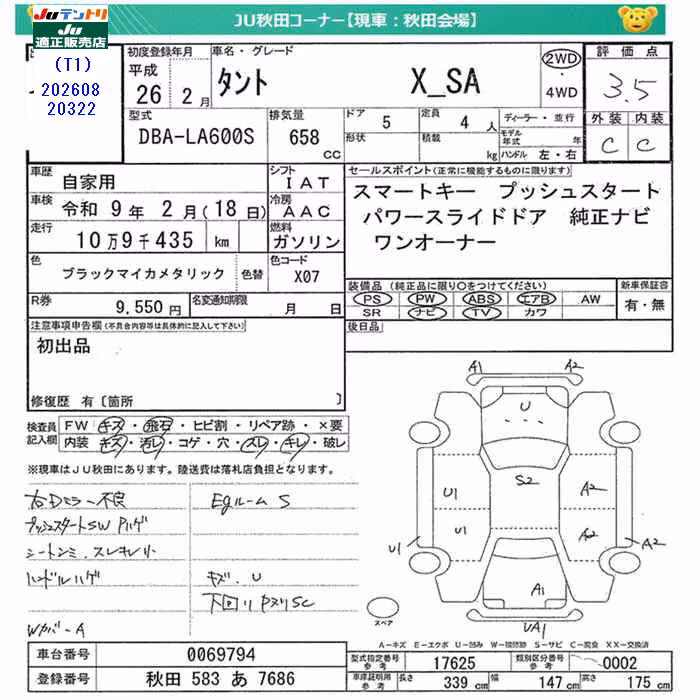 JU秋田コーナー【現車：秋田会場】
Juテントリ
JU
適正販売店
(T1)
202608
20322
初度登録年月
平成
26年 2月
車名・グレード
タント X_SA
2WD
:
4WD
評価点
3.5
型式
DBA-LA600S
排気量
658 CC
ドア 5
形状
定員 4人
積載 kg
ディーラー・並行
モデル年式 年
ハンドル 左・右
外装 内装
C C
車歴 自家用
シフト IAT
車検 令和 9年 2月(18日)
冷房 AAC
走行 10万9千435 km
燃料 ガソリン
色 ブラックマイカメタリック 色替
色コード X07
R券 9,550円
名変通知期限 月 日
セールスポイント(正常に機能するものに限ります)
スマートキー プッシュスタート
パワースライドドア 純正ナビ
ワンオーナー
装備品 (純正品に限り〇をつけてください)
PS PW ABS エアB AW
SR ナビ TV カワ
新車保証書
有・無
後日品
注意事項申告欄(不具合内容等は具体的に記入して下さい)
初出品
修復歴 有〔箇所 〕
検査員記入欄
FW キズ・飛石・ヒビ割・リペア跡・×要
内装 キズ・汚レ・コゲ・穴・スレ・キレ・破レ
※現車はJU秋田にあります。陸送費は落札店負担となります。
右Dミラー不良
プッシュスタートSW Pハゲ
シートシミ、スレキレリ
ハンドルハゲ
Wカバ-A
Egルーム S
キズ.U
下回リPスリSC
A1 A2
U
S2
U1 A2
U1 A2
U1 A2
A1
UA1
スペア
A-キズ E-エクボ U-凹み W-補修跡 S-サビ C-腐食 XX-交換済
車台番号 0069794
登録番号 秋田 583 あ 7686
型式指定番号 参考 17625
類別区分番号 参考 0002
車庫証明用 参考 長さ 339 cm 幅 147 cm 高さ 175 cm